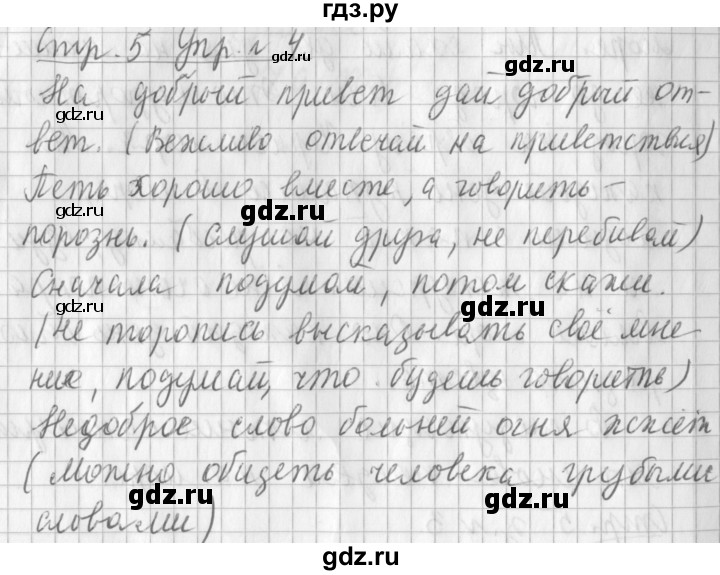 гдз.ру
Стр. 5 Упр. № 4
gdz.ru gdz.ru
На добрый привет дай добрый от-
gdz.ru gdz.ru
вет. (Вежливо отвечай на приветствия)
Петь хорошо вместе, а говорить -
gdz.ru gdz.ru
порознь. (слушай друга, не перебивай)
Сначала подумай, потом скажи.
gdz.ru gdz.ru
(не торопись высказывать своё мне
ние, подумай, что будешь говорить)
gdz.ru gdz.ru
Недоброе слово больней огня жжёт
(можно обидеть человека грубыми
gdz.ru gdz.ru
словами)
gdz.ru